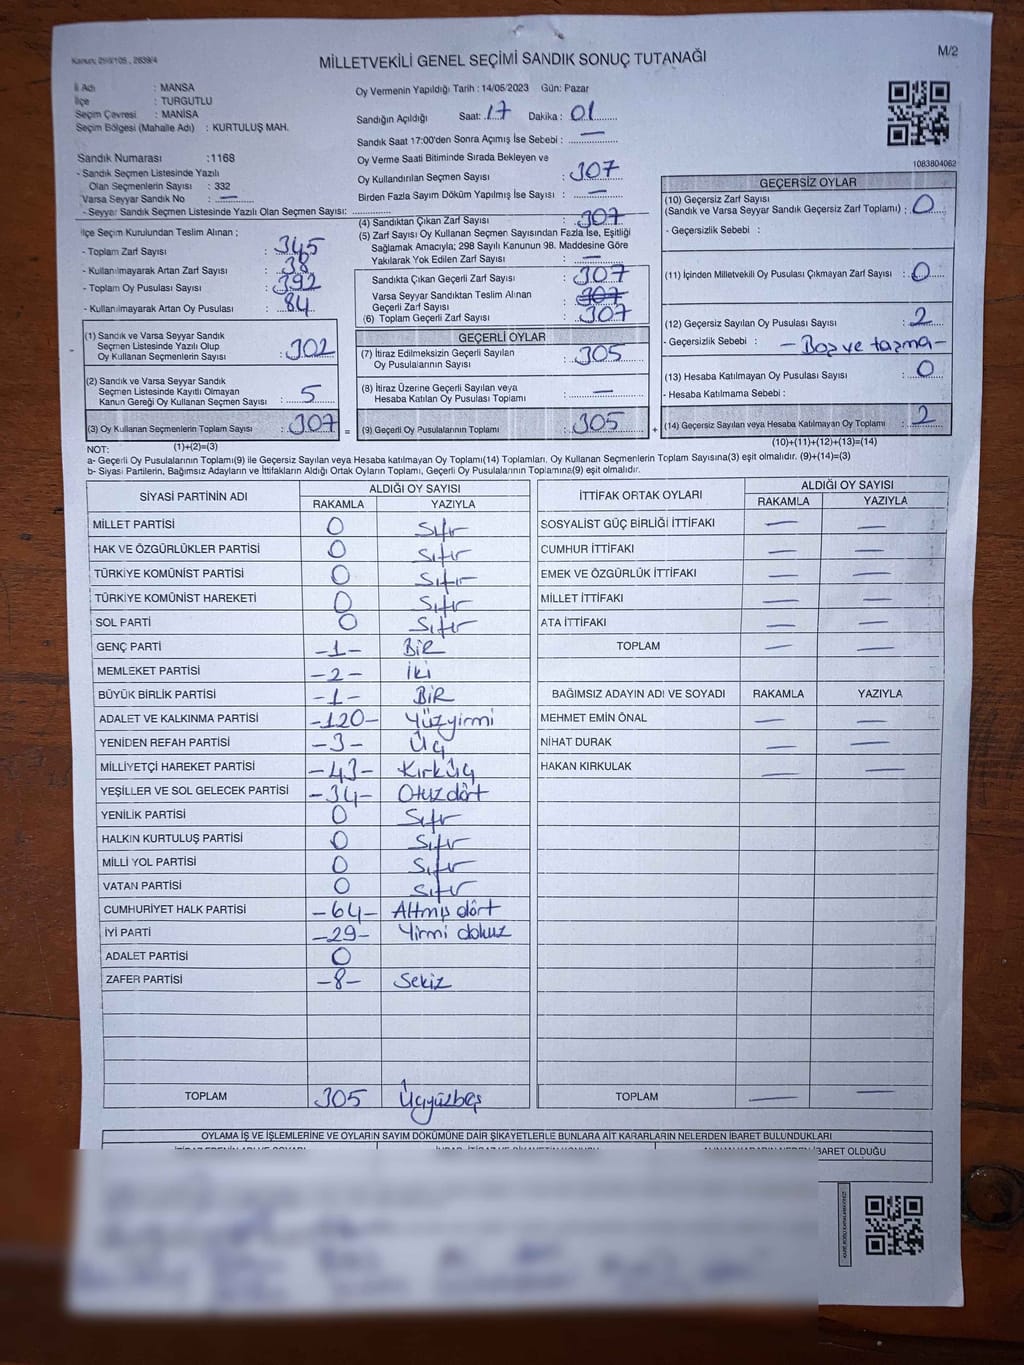 Kanun: 298/105, 2839/4
MİLLETVEKİLİ GENEL SEÇİMİ SANDIK SONUÇ TUTANAĞI
M/2
İl Adı : MANİSA
İlçe : TURGUTLU
Seçim Çevresi : MANİSA
Seçim Bölgesi (Mahalle Adı) : KURTULUŞ MAH.
Sandık Numarası :1168
- Sandık Seçmen Listesinde Yazılı
Olan Seçmenlerin Sayısı : 332
Varsa Seyyar Sandık No : —
- Seyyar Sandık Seçmen Listesinde Yazılı Olan Seçmen Sayısı: ..............
Oy Vermenin Yapıldığı Tarih : 14/05/2023 Gün: Pazar
Sandığın Açıldığı Saat: 17 Dakika : 01
Sandık Saat 17:00'den Sonra Açımış İse Sebebi : —
Oy Verme Saati Bitiminde Sırada Bekleyen ve
Oy Kullandırılan Seçmen Sayısı : 307
Birden Fazla Sayım Döküm Yapılmış İse Sayısı : —
1083804062
İlçe Seçim Kurulundan Teslim Alınan ;
- Toplam Zarf Sayısı : 345
- Kullanılmayarak Artan Zarf Sayısı : 38
- Toplam Oy Pusulası Sayısı : 392
- Kullanılmayarak Artan Oy Pusulası : 84
(1) Sandık ve Varsa Seyyar Sandık
Seçmen Listesinde Yazılı Olup
Oy Kullanan Seçmenlerin Sayısı : 302
(2) Sandık ve Varsa Seyyar Sandık
Seçmen Listesinde Kayıtlı Olmayan
Kanun Gereği Oy Kullanan Seçmen Sayısı : 5
(3) Oy Kullanan Seçmenlerin Toplam Sayısı : 307 =
(4) Sandıktan Çıkan Zarf Sayısı : 307
(5) Zarf Sayısı Oy Kullanan Seçmen Sayısından Fazla İse, Eşitliği
Sağlamak Amacıyla; 298 Sayılı Kanunun 98. Maddesine Göre
Yakılarak Yok Edilen Zarf Sayısı : —
Sandıkta Çıkan Geçerli Zarf Sayısı : 307
Varsa Seyyar Sandıktan Teslim Alınan
Geçerli Zarf Sayısı : 307
(6) Toplam Geçerli Zarf Sayısı : 307
GEÇERLİ OYLAR
(7) İtiraz Edilmeksizin Geçerli Sayılan
Oy Pusulalarının Sayısı : 305
(8) İtiraz Üzerine Geçerli Sayılan veya
Hesaba Katılan Oy Pusulası Toplamı : —
(9) Geçerli Oy Pusulalarının Toplamı : 305 +
GEÇERSİZ OYLAR
(10) Geçersiz Zarf Sayısı
(Sandık ve Varsa Seyyar Sandık Geçersiz Zarf Toplamı) : 0
- Geçersizlik Sebebi :
(11) İçinden Milletvekili Oy Pusulası Çıkmayan Zarf Sayısı : 0
(12) Geçersiz Sayılan Oy Pusulası Sayısı : 2
- Geçersizlik Sebebi : — Boş ve taşma —
(13) Hesaba Katılmayan Oy Pusulası Sayısı : 0
- Hesaba Katılmama Sebebi :
(14) Geçersiz Sayılan veya Hesaba Katılmayan Oy Toplamı : 2
NOT: (1)+(2)=(3) (10)+(11)+(12)+(13)=(14)
a- Geçerli Oy Pusulalarının Toplamı(9) ile Geçersiz Sayılan veya Hesaba Katılmayan Oy Toplamı(14) Toplamları, Oy Kullanan Seçmenlerin Toplam Sayısına(3) eşit olmalıdır. (9)+(14)=(3)
b- Siyasi Partilerin, Bağımsız Adayların ve İttifakların Aldığı Ortak Oyların Toplamı, Geçerli Oy Pusulalarının Toplamına(9) eşit olmalıdır.
SİYASİ PARTİNİN ADI ALDIĞI OY SAYISI
RAKAMLA YAZIYLA
MİLLET PARTİSİ 0 Sıfır
HAK VE ÖZGÜRLÜKLER PARTİSİ 0 Sıfır
TÜRKİYE KOMÜNİST PARTİSİ 0 Sıfır
TÜRKİYE KOMÜNİST HAREKETİ 0 Sıfır
SOL PARTİ 0 Sıfır
GENÇ PARTİ -1- BİR
MEMLEKET PARTİSİ -2- İki
BÜYÜK BİRLİK PARTİSİ -1- BİR
ADALET VE KALKINMA PARTİSİ -120- Yüzyirmi
YENİDEN REFAH PARTİSİ -3- Üç
MİLLİYETÇİ HAREKET PARTİSİ -43- Kırküç
YEŞİLLER VE SOL GELECEK PARTİSİ -34- Otuzdört
YENİLİK PARTİSİ 0 Sıfır
HALKIN KURTULUŞ PARTİSİ 0 Sıfır
MİLLİ YOL PARTİSİ 0 Sıfır
VATAN PARTİSİ 0 Sıfır
CUMHURİYET HALK PARTİSİ -64- Altmış dört
İYİ PARTİ -29- Yirmi dokuz
ADALET PARTİSİ 0
ZAFER PARTİSİ -8- Sekiz
TOPLAM 305 Üçyüzbeş
İTTİFAK ORTAK OYLARI ALDIĞI OY SAYISI
RAKAMLA YAZIYLA
SOSYALİST GÜÇ BİRLİĞİ İTTİFAKI — —
CUMHUR İTTİFAKI — —
EMEK VE ÖZGÜRLÜK İTTİFAKI — —
MİLLET İTTİFAKI — —
ATA İTTİFAKI — —
TOPLAM — —
BAĞIMSIZ ADAYIN ADI VE SOYADI RAKAMLA YAZIYLA
MEHMET EMİN ÖNAL — —
NİHAT DURAK — —
HAKAN KIRKULAK — —
TOPLAM — —
OYLAMA İŞ VE İŞLEMLERİNE VE OYLARIN SAYIM DÖKÜMÜNE DAİR ŞİKAYETLERLE BUNLARA AİT KARARLARIN NELERDEN İBARET BULUNDUKLARI
İBARET OLDUĞU